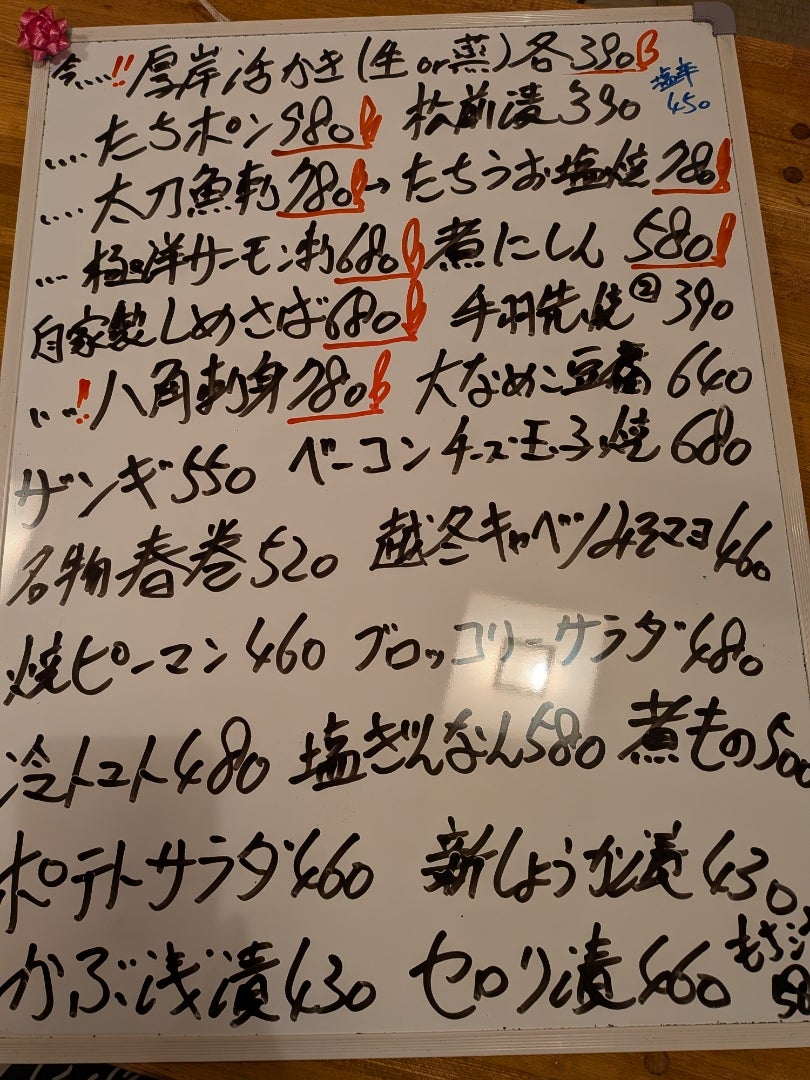 今....!! 厚岸活かき(生or蒸)各390
塩辛
450
....たちポン980 松前漬390
....太刀魚刺780→たちうお塩焼780
...極洋サーモン刺680 煮にしん580
自家製しめさば680 手羽先焼②390
....!!八角刺身780 大なめこ豆腐640
ザンギ550 ベーコンチーズ玉子焼680
名物春巻520 越冬キャベツみそマヨ460
焼ピーマン460 ブロッコリーサラダ480
冷トマト480 塩ぎんなん580 煮もの500
ポテトサラダ460 新しょうが漬430
かぶ浅漬430 セロリ漬460
もちジ